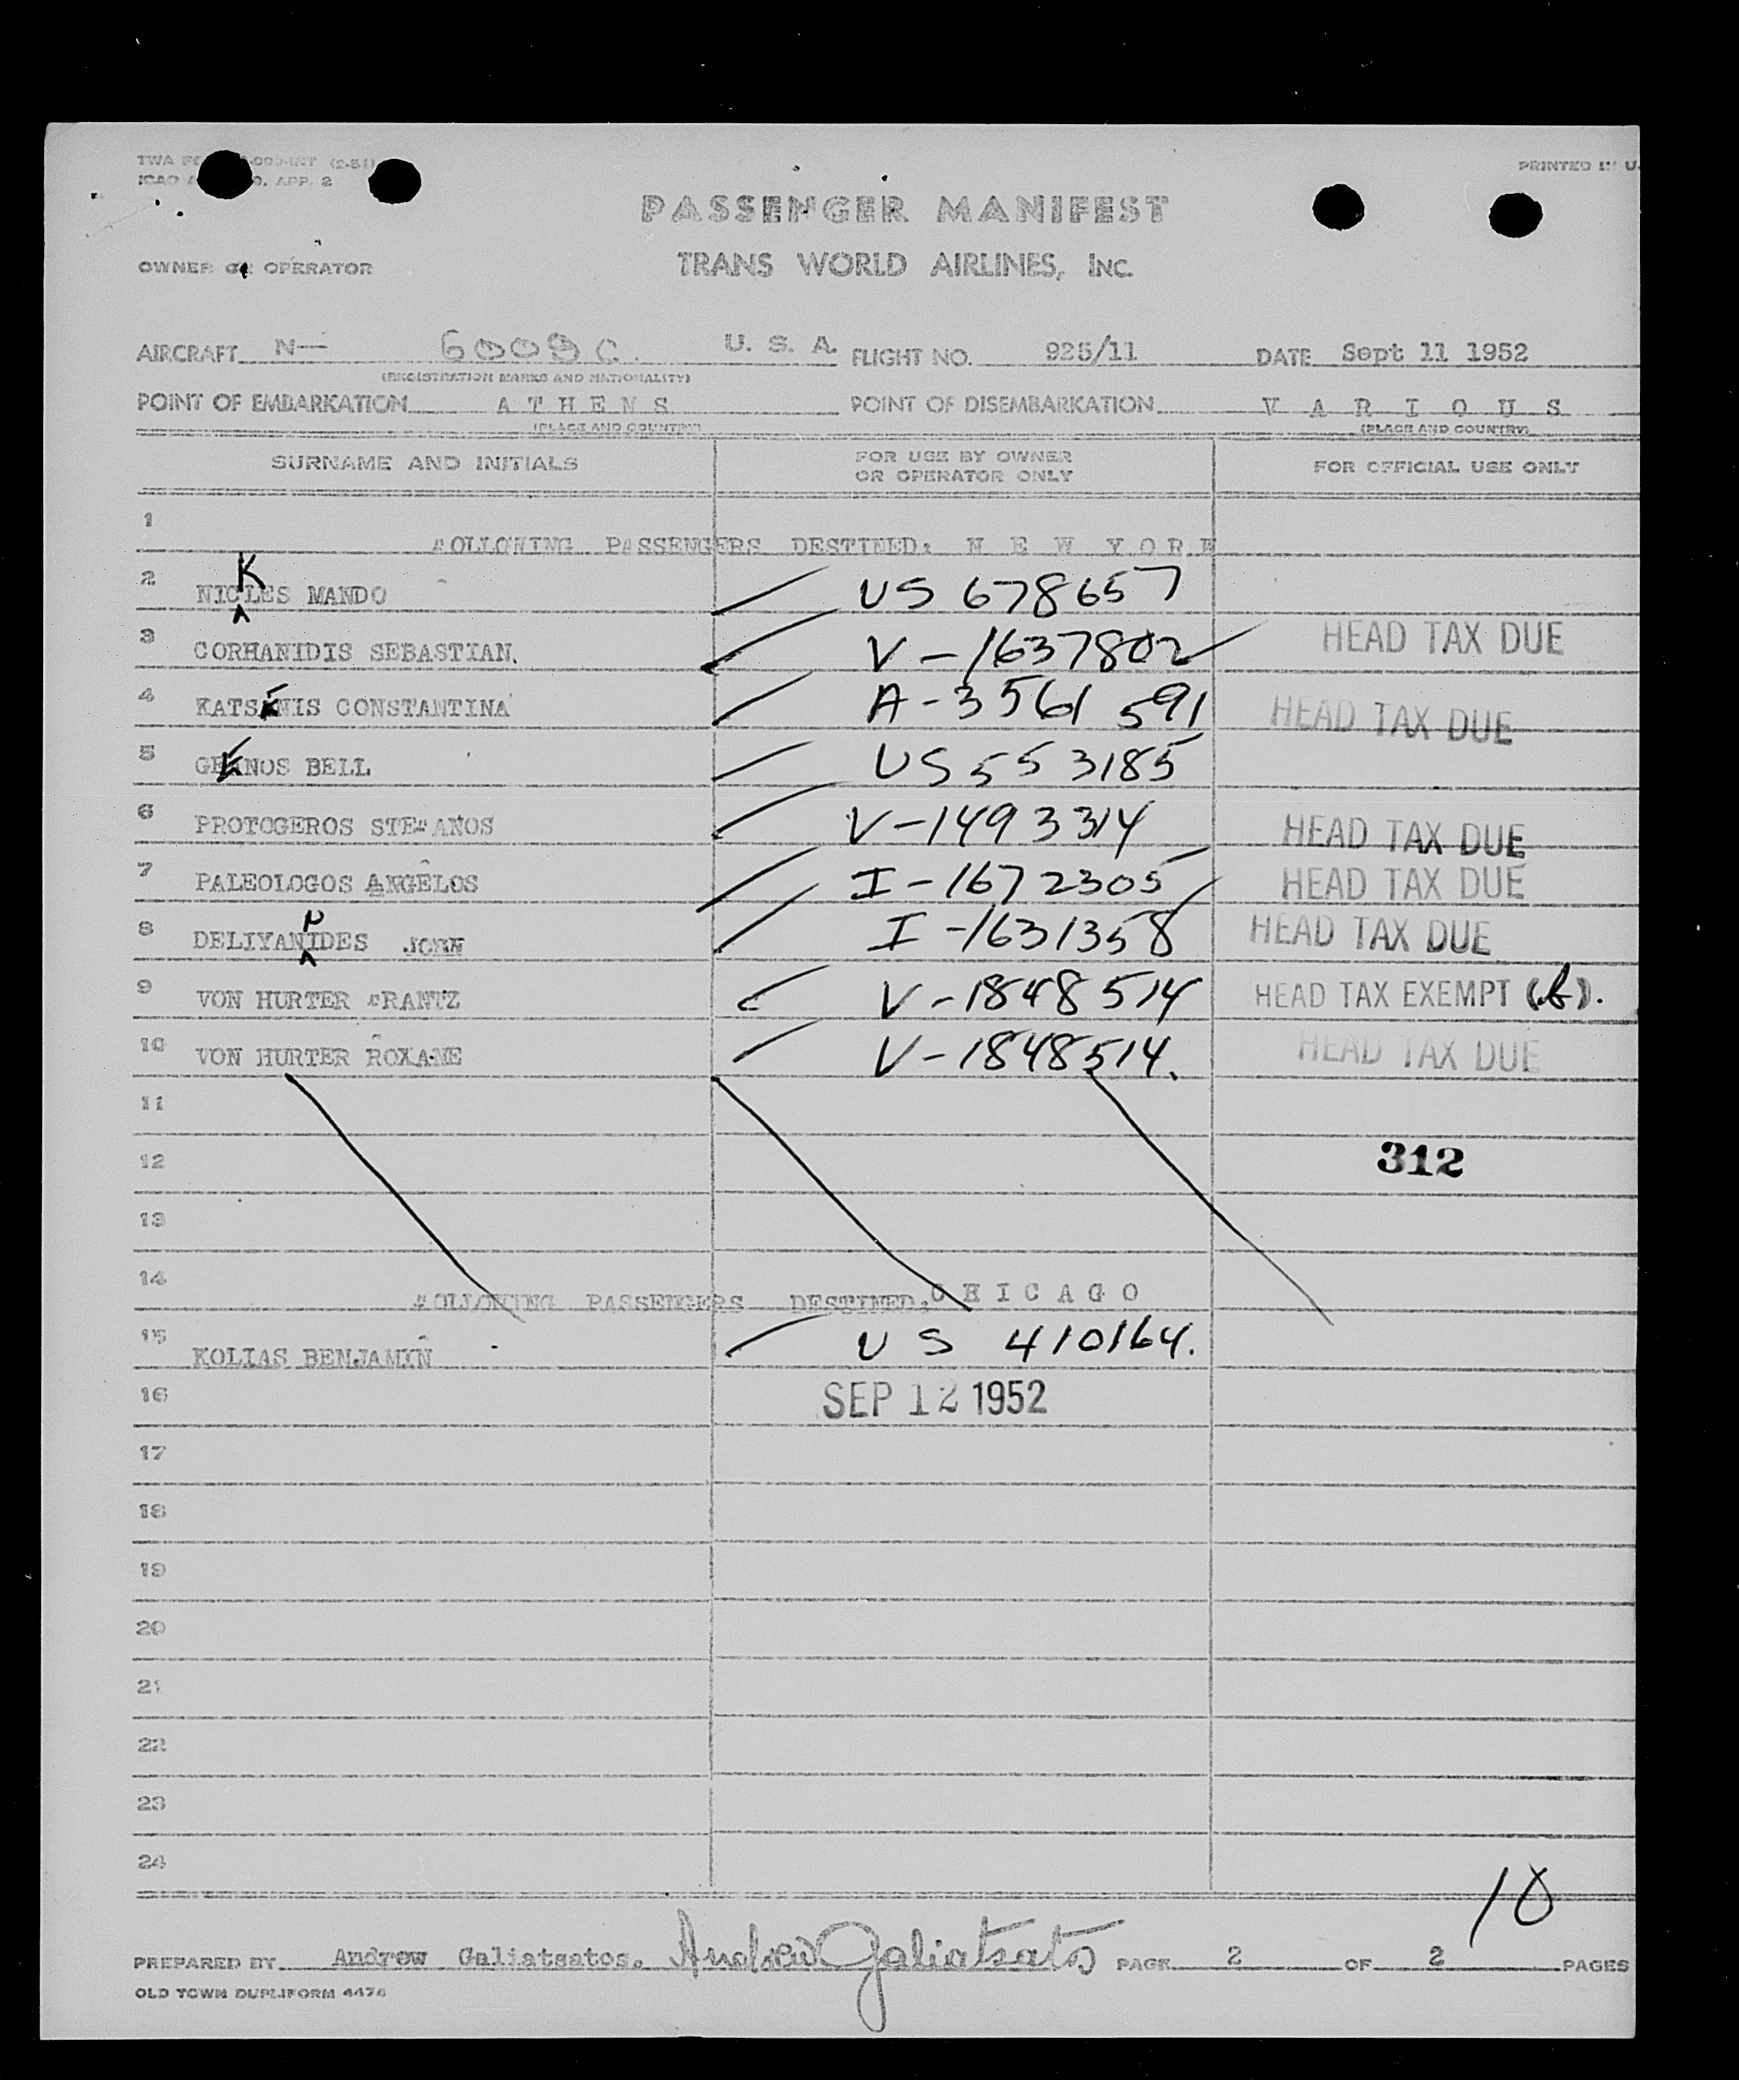 PRINTED IN U.
ICAO APP. 2
PASSENGER MANIFEST
OWNER OR OPERATOR TRANS WORLD AIRLINES, INC.
AIRCRAFT N— 6009C. U. S. A. FLIGHT NO. 925/11 DATE Sept 11 1952
(REGISTRATION MARKS AND NATIONALITY)
POINT OF EMBARKATION A T H E N S POINT OF DISEMBARKATION V A R I O U S
(PLACE AND COUNTRY) (PLACE AND COUNTRY)
SURNAME AND INITIALS FOR USE BY OWNER OR OPERATOR ONLY FOR OFFICIAL USE ONLY
1 FOLLOWING PASSENGERS DESTINED: N E W Y O R K
K
2 NICLES MANDO US 678657
3 CORHANIDIS SEBASTIAN. V-1637802 HEAD TAX DUE
4 CONSTANTINA A-3561 591 HEAD TAX DUE
5 BELL US 553185
6 PROTOGEROS STEFANOS V-1493314 HEAD TAX DUE
7 PALEOLOGOS ANGELOS I-1672305 HEAD TAX DUE
8 DELIYANIDES JOHN I-1631358 HEAD TAX DUE
9 VON HURTER FRANTZ V-1848514 HEAD TAX EXEMPT
10 VON HURTER ROXANE V-1848514. HEAD TAX DUE
11
12 312
13
14 FOLLOWING PASSENGERS DESTINED: C H I C A G O
15 KOLIAS BENJAMIN US 410164.
16 SEP 12 1952
17
18
19
20
21
22
23
24
10
PREPARED BY Andrew Galiatsatos. Andrew Galiatsatos PAGE 2 OF 2 PAGES
OLD TOWN DUPLIFORM 4474